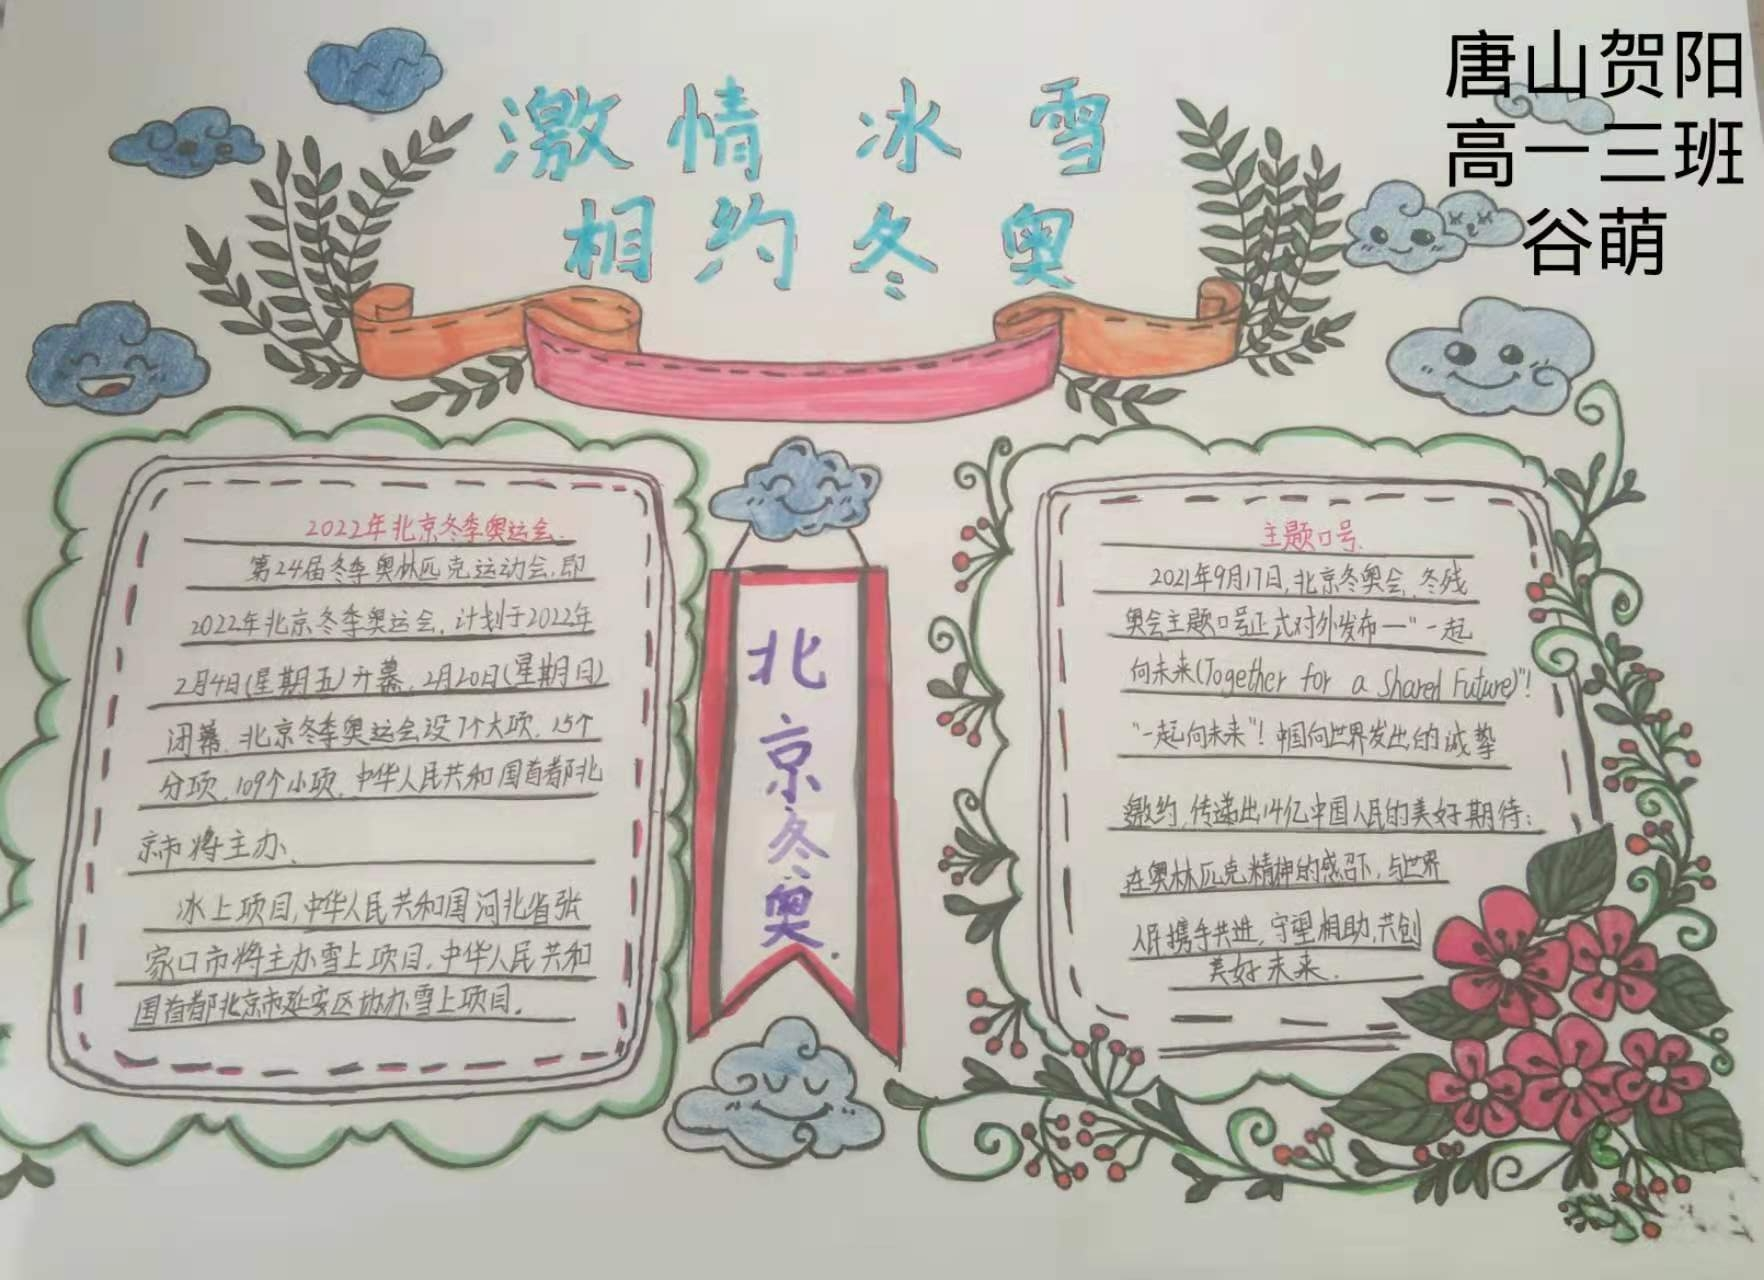 激情冰雪
相约冬奥
唐山贺阳
高一三班
谷萌
2022年北京冬季奥运会.
第24届冬季奥林匹克运动会,即
2022年北京冬季奥运会,计划于2022年
2月4日(星期五)开幕,2月20日(星期日)
闭幕,北京冬季奥运会设7个大项,15个
分项,109个小项,中华人民共和国首都北
京市将主办、
冰上项目,中华人民共和国河北省张
家口市将主办雪上项目,中华人民共和
国首都北京市延安区协办雪上项目.
北京冬奥.
主题口号.
2021年9月17日,北京冬奥会、冬残
奥会主题口号正式对外发布—"一起
向未来(Together for a Shared Future)"!
"一起向未来"!中国向世界发出的诚挚
邀约,传递出14亿中国人民的美好期待:
在奥林匹克精神的感召下,与世界
人民携手共进,守望相助,共创
美好未来.